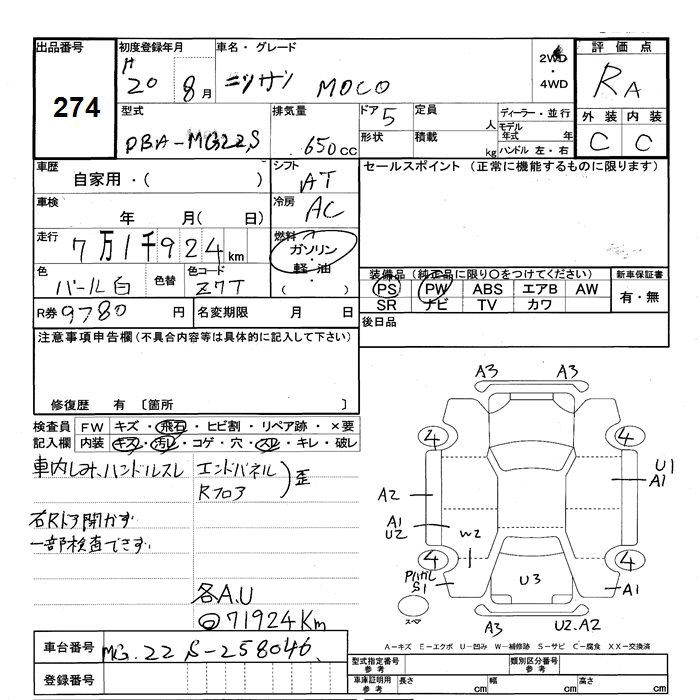 出品番号 初度登録年月 車名・グレード 2WD・4WD 評価点
274 H20 8月 ニッサン MOCO RA
型式 排気量 ドア 5 定員 人 ディーラー・並行 外装 内装
DBA-MG22S 650cc 形状 積載 kg モデル年式 年 C C
ハンドル 左・右
車歴 シフト セールスポイント (正常に機能するものに限ります)
自家用・( ) AT
車検 冷房
年 月( 日) AC
走行 燃料
7万1千924km ガソリン・軽油・( )
色 色替 色コード 装備品 (純正品に限り○をつけてください) 新車保証書
パール白 Z7T PS PW ABS エアB AW 有・無
R券 9780 円 名変期限 月 日 SR ナビ TV カワ
注意事項申告欄 (不具合内容等は具体的に記入して下さい) 後日品
修復歴 有 〔箇所 〕
A3 A3
検査員 FW キズ・飛石・ヒビ割・リペア跡・×要
記入欄 内装 キズ・汚レ・コゲ・穴・スレ・キレ・破レ
4 4
車内しみ、ハンドルスレ エンドパネル
Rフロア 歪
U1
A1
A2
右Rドア開かず
一部検査できず
A1
U2
W2
4 4
Pハガレ
S1
U3
A1
各A.U
71924Km
スペア
A3 U2.A2
A-キズ E-エクボ U-凹み W-補修跡 S-サビ C-腐食 XX-交換済
車台番号 MG.22S-258046
型式指定番号 参考 類別区分番号 参考
登録番号 車庫証明用 参考 長さ cm 幅 cm 高さ cm